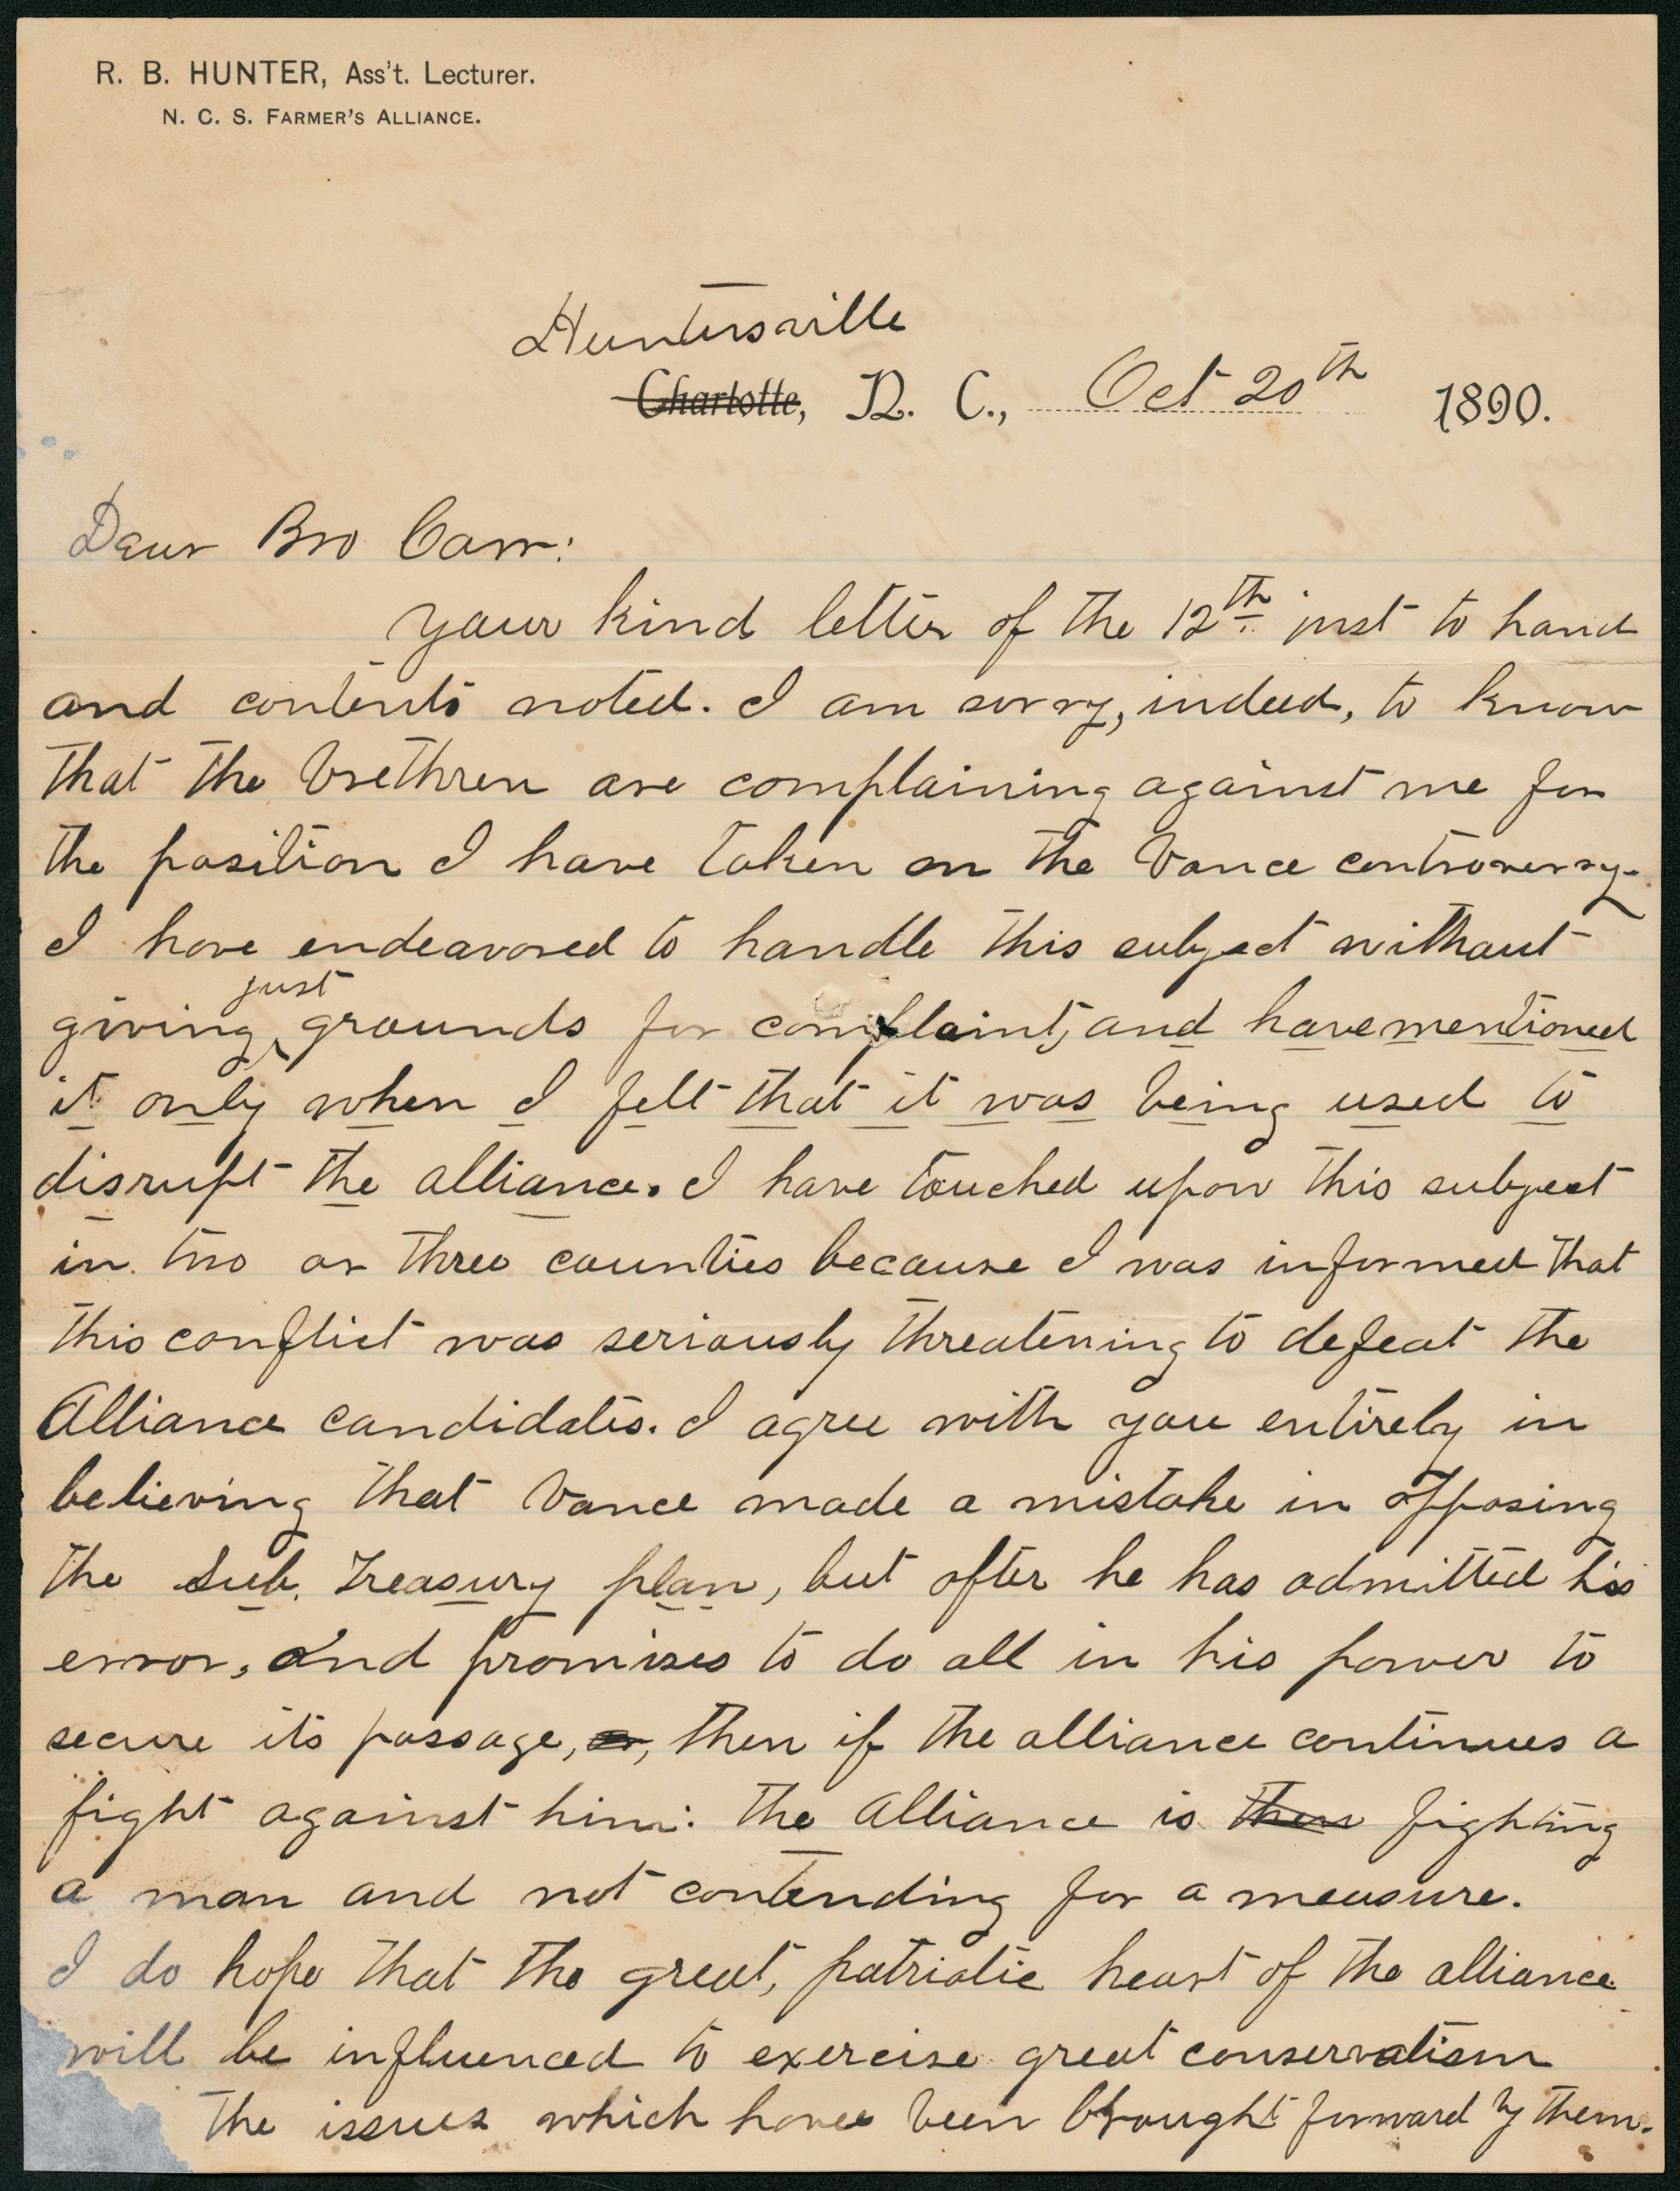 R. B. HUNTER, Ass't. Lecturer.
N. C. S. FARMER'S ALLIANCE.
Huntersville
Charlotte, N. C., Oct 20th 1890.
Dear Bro Carr:
Your kind letter of the 12th inst to hand
and contents noted. I am sorry, indeed, to know
that the brethren are complaining against me for
the position I have taken on the Vance controversy.
I have endeavored to handle this subject without
just
giving grounds for complaint, and have mentioned
it only when I felt that it was being used to
disrupt the alliance. I have touched upon this subject
in two or three counties because I was informed that
this conflict was seriously threatening to defeat the
Alliance candidates. I agree with you entirely in
believing that Vance made a mistake in opposing
the Sub. Treasury plan, but after he has admitted his
error, and promises to do all in his power to
secure its passage, then if the alliance continues a
fight against him: the Alliance is then fighting
a man and not contending for a measure.
I do hope that the great, patriotic heart of the alliance
will be influenced to exercise great conservatism
the issues which have been brought forward by them.